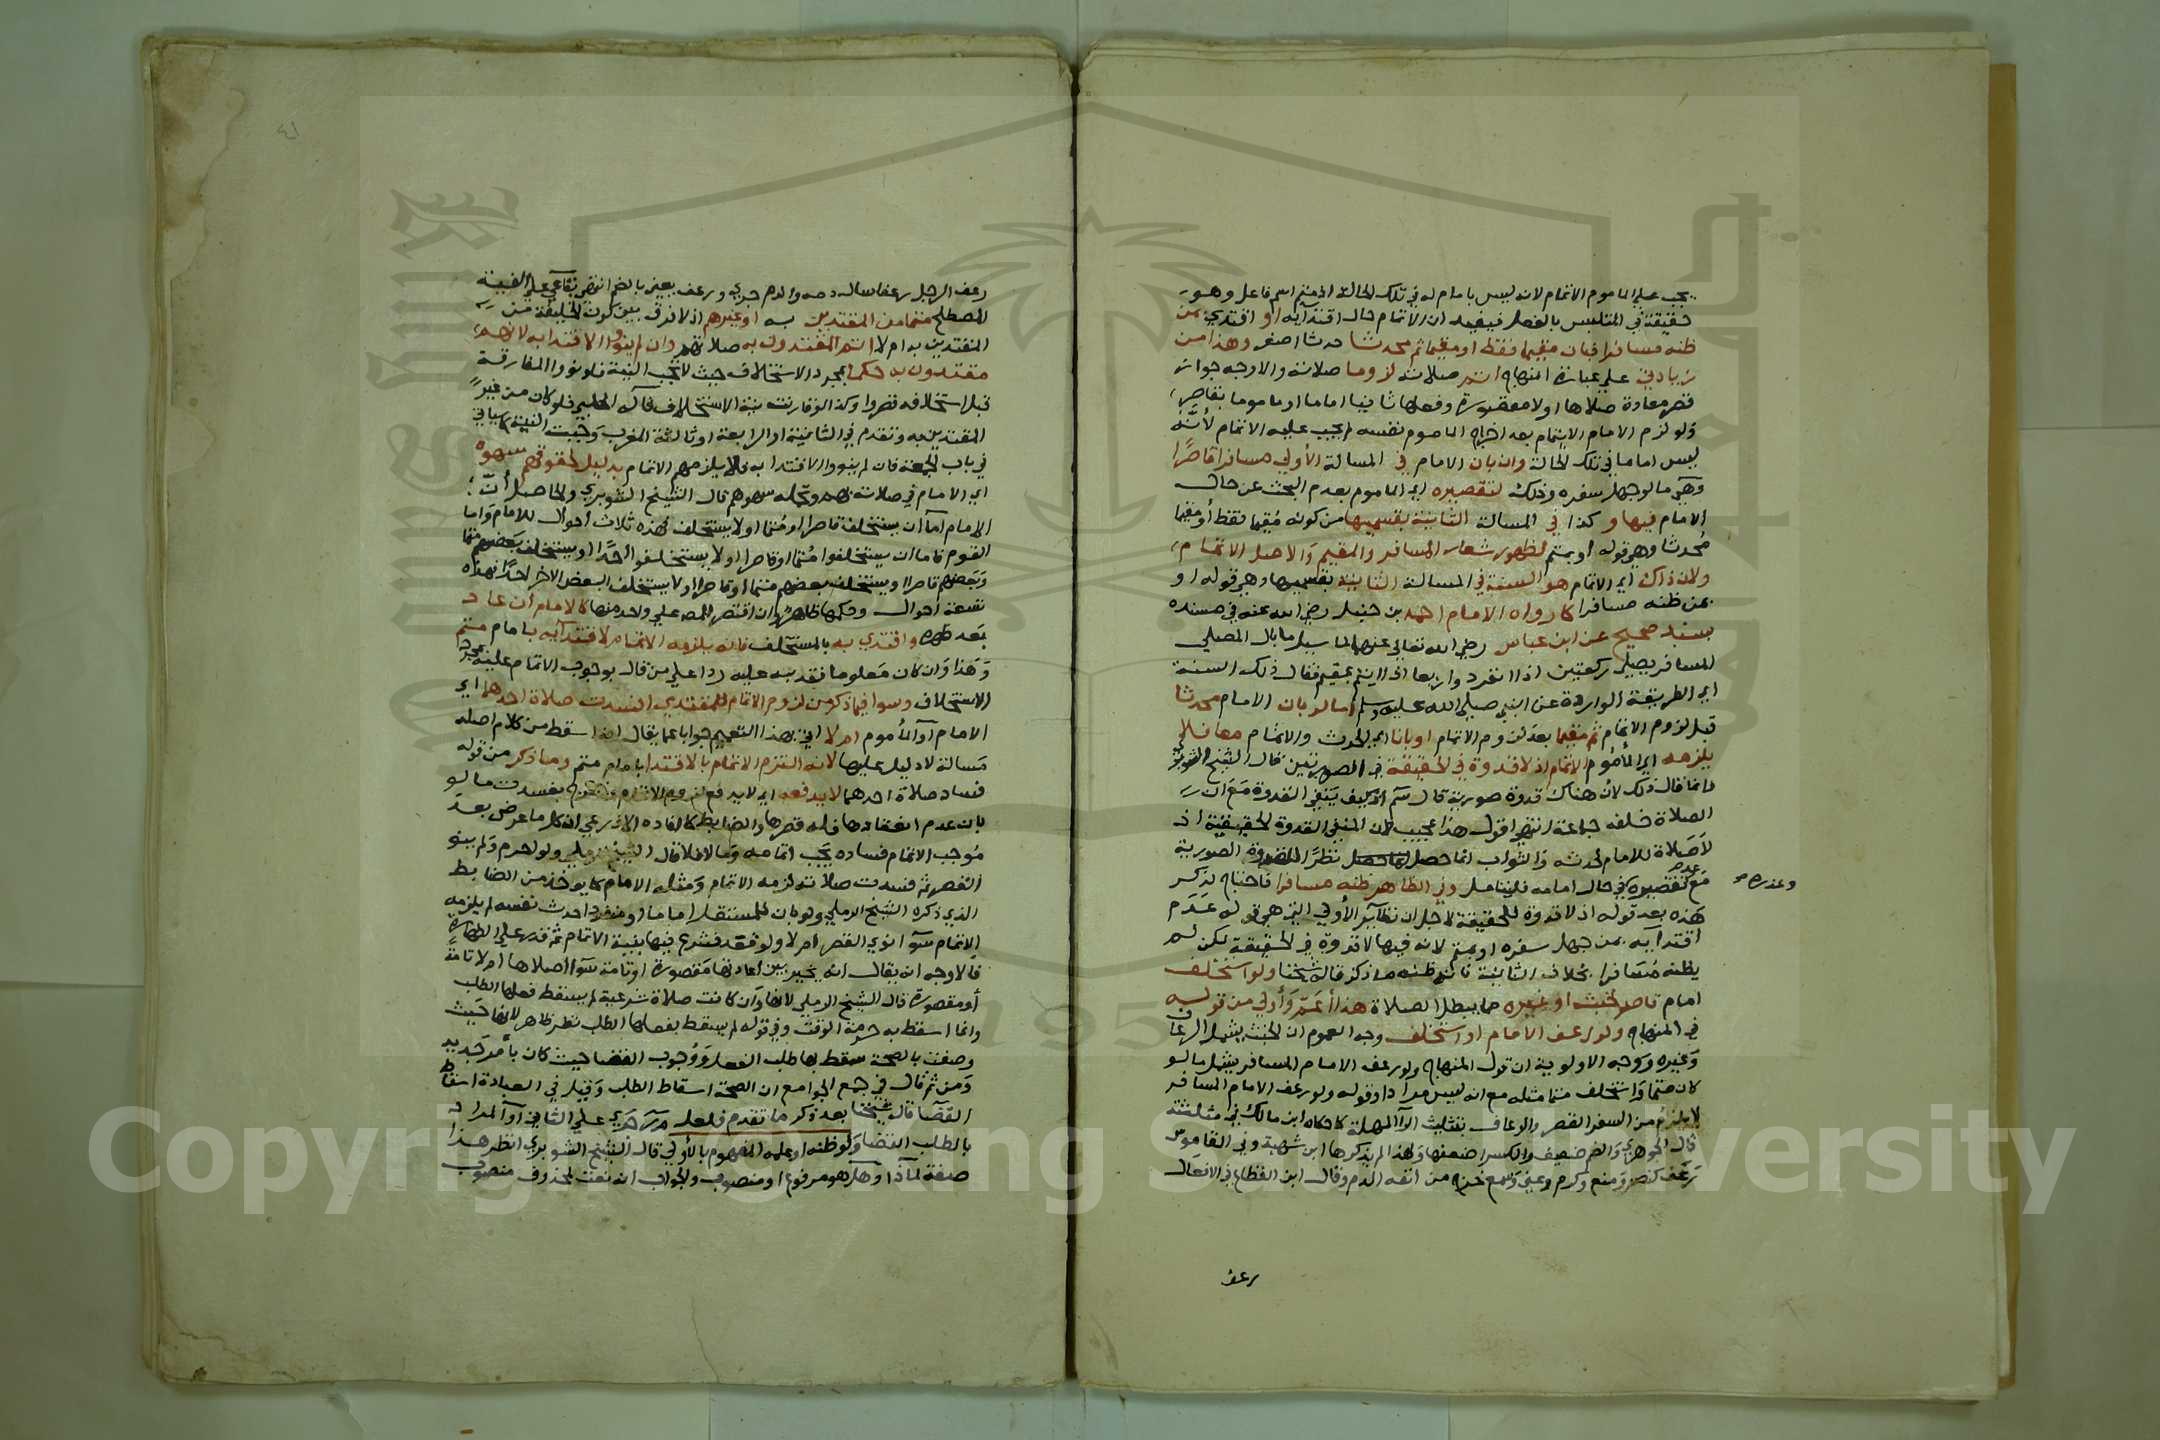 يجب على الماموم الاتمام لانه ليس بامام له في تلك الحالة اذ المتم اسم فاعل وهو
حقيقة في المتلبس بالفعل فيفيد ان الاتمام حال اقتدايه او اقتدي بمن
ظنه مسافرا فبان مقيما فقط او مقيما ثم محدثا حدثا اصغر وهذا من
زيادتي على عبارة المنهاج اتم صلاته لزوما صلاته والاوجه جواز
قصر معادة صلاها اولا مقصورة وفعلها ثانيا اماما او ماموما بقاصر
ولو لزم الامام الاتمام بعد اخراج الماموم نفسه لم يجب عليه الاتمام لانه
ليس اماما في تلك الحالة وان بان الامام في المسالة الأولى مسافرا قاصرا
وهي ما لو جهل سفره وذلك لتقصيره اي الماموم بعدم البحث عن حال
الامام فيها و كذا في المسالة الثانية بقسميها من كونه مقيما فقط أو مقيما
محدثا وهي قوله او بمتم لظهور شعار المسافر والمقيم والاصل الاتمام
ولان ذلك اي الاتمام هو السنة في المسالة الثانية بقسميها وهي قوله او
بمن ظنه مسافرا كما رواه الامام احمد بن حنبل رضي الله عنه في مسنده
بسند صحيح عن ابن عباس رضي الله تعالى عنهما لما سيل ما بال المصلي
المسافر يصلي ركعتين اذا انفرد واربعا اذا ايتم بمقيم فقال ذلك السنة
اي الطريقة الواردة عن النبي صلى الله عليه وسلم اما لو بان الامام محدثا
قبل لزوم الاتمام ثم مقيما بعد لزوم الاتمام او بانا اي الحدث والاتمام معا فلا
يلزمه اي المأموم الاتمام اذ لا قدوة في الحقيقة في الصورتين قال الشيخ الشوبري
وانما قال ذلك لان هناك قدوة صورية قال سم انه كيف ينفي القدوة مع ان
الصلاة خلفه جماعة انتهى اقول هذا عجيب لان المنفي القدوة الحقيقية اذ
لا صلاة للامام لحدثه والثواب انما حصل نظرا للقدوة الصورية
مع عدم تقصيره في حال امامه فليتامل وفي الظاهر ظنه مسافرا فاحتاج لذكر
وعذره صح
هذه بعد قوله اذ لا قدوة للحقيقة لاجل ان نظاير الأولى التي هي قوله عدم
اقتدايه بمن جهل سفره او بمتم لانه فيها لا قدوة في الحقيقة لكن لم
يظنه مسافرا بخلاف الثانية فانه ظنه ما ذكر قاله شيخنا ولو استخلف
امام قاصر لخبث او غيره مما يبطل الصلاة هذا أعم وأولى من قوله
في المنهاج ولو رعف الامام او استخلف وجه العموم ان الخبث يشمل الرعاف
وغيره ووجه الاولوية ان قول المنهاج ولو رعف الامام المسافر يشمل ما لو
كان متما واستخلف متما مثله مع انه ليس مرادا وقوله ولو رعف الامام المسافر
لا يلزم من السفر القصر والرعاف بتثليث الراء المهملة كما حكاه ابن مالك في مثلثته
قال الجوهري والضم ضعيف والكسر اضعفها ولهذا لم يذكرها ابن شهبة وفي القاموس
رعف كنصر ومنع وكرم وعني وسمع خرج من انفه الدم وقال ابن القطاع في الافعال
رعف
رعف الرجل رعفا سال دمه والدم جري ورعف يعني بالضم انتهى بقاعي على الفية
المصطلح متما من المقتدين به او غيرهم اذ لا فرق بين كون الخليفة من
المقتدين به ام لا اتم المقتدون به صلاتهم وان لم ينووا الاقتدا به لانهم
مقتدون به حكما بمجرد الاستخلاف حيث لا تجب النية فلو نووا المفارقة
قبل استخلافه قصروا وكذا لو قارنت نية الاستخلاف قاله الحلبي فلو كان من غير
المقتدين به وتقدم في الثانية او الرابعة او ثالثة المغرب وجبت النية كما ياتي
في باب الجمعة فان لم ينووا الاقتدا به فلا يلزمهم الاتمام بدليل لحوقهم سهوه
اي الامام في صلاته بهم وتحمله سهوهم قال الشيخ الشوبري والحاصل أن
الامام اما ان يستخلف قاصرا او متما او لا يستخلف فهذه ثلاث أحوال للامام واما
القوم فاما ان يستخلفوا متما او قاصرا او لا يستخلفوا احدا او يستخلف بعضهم متما
وبعضهم قاصرا او يستخلف بعضهم متما او قاصرا ولا يستخلف البعض الاخر احدا فهذه
تسعة احوال وحكمها ظاهر وان اقتصر المص على واحد منها كالامام ان عاد
بعد طهره واقتدي به بالمستخلف فانه يلزمه الاتمام لاقتدايه بامام متم
وهذا وان كان معلوما فقد نبه عليه ردا على من قال بوجوب الاتمام عليه بمجرد
الاستخلاف وسوا فيما ذكر من لزوم الاتمام للمقتدي افسدت صلاة احدهما اي
الامام أو المأموم ام لا اتي بهذا التعميم جوابا عما يقال ان سقط من كلام اصله
مسالة لا دليل عليها لانه التزم الاتمام بالاقتدا بامام متم وما ذكر من قوله
فساد صلاة احدهما لا يدفعه اي لا يدفع لزوم الاتمام بفسدت ما لو
بان عدم انعقادها فله قصرها والضابط كما افاده الاذرعي ان كل ما عرض بعد
موجب الاتمام فساده يجب اتمامه وما لا فلا قال الشيخ الرملي ولو احرم ولم ينو
القصر ثم فسدت صلاته لزمه الاتمام ومثله الامام كما يوخذ من الضابط
الذي ذكره الشيخ الرملي ولو بان للمستقل اماما او منفردا حدث نفسه لم يلزمه
الاتمام سوا نوي القصر ام لا ولو فقد فشرع فيها بنية الاتمام ثم قدر على الطهارة
فالاوجه ان يقال انه يخير بين اعادتها مقصورة او تامة سوا اصلاها ام لا تامة
أو مقصورة قال الشيخ الرملي لانها وان كانت صلاة شرعية لم يسقط فعلها الطلب
وانما اسقط به حرمة الوقت وفي قوله لم يسقط بفعلها الطلب نظر ظاهر لانها حيث
وصفت بالصحة سقط بها طلب الفعل ووجوب القضا حيث كان بأمر جديد
ومن ثم قال في جمع الجوامع ان الصحة اسقاط الطلب وقيل في العبادة اسقاط
القضا قال شيخنا بعد ذكر ما تقدم فلعل م ر جري على الثاني أو المراد
بالطلب القضا ولو ظنه او علمه المفهوم بالأولى قال الشيخ الشوبري انظر هذا
صفة لماذا وهل هو مرفوع او منصوب والجواب انه نعت لمحذوف منصوب
Copyright © King Saud University